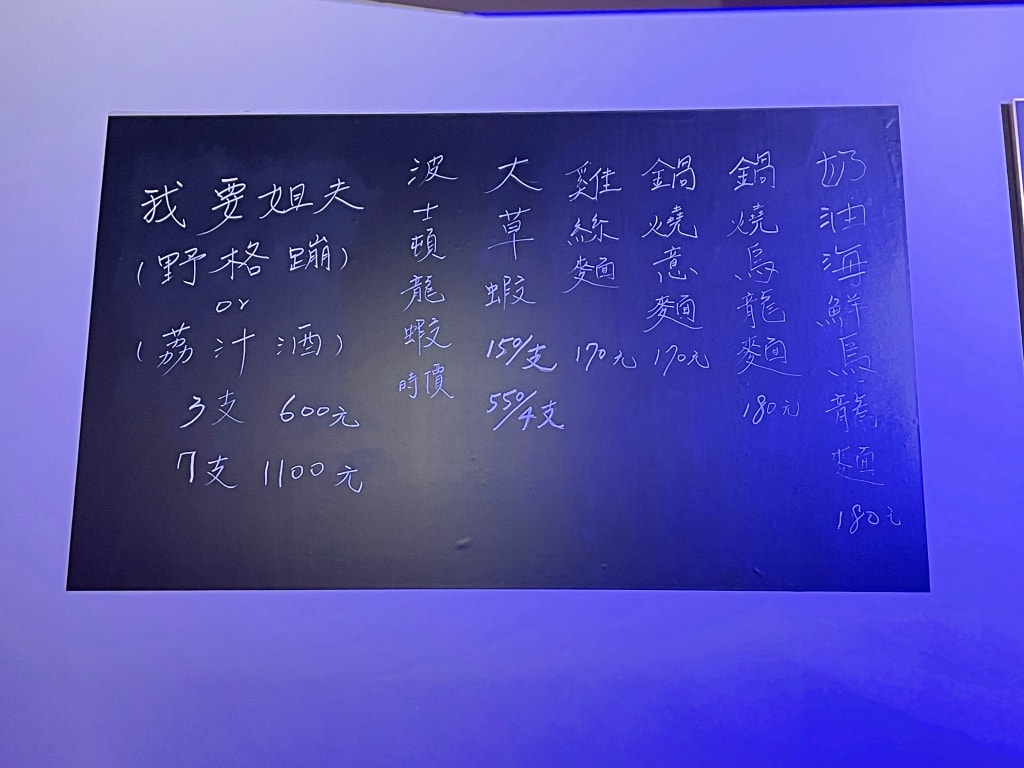 奶油海鮮烏龍麵
180元
鍋燒烏龍麵
180元
鍋燒意麵
170元
雞絲麵
170元
大草蝦
150/支
550/4支
波士頓龍蝦
時價
我要姐夫
(野格蹦)
or
(荔汁酒)
3支 600元
7支 1100元